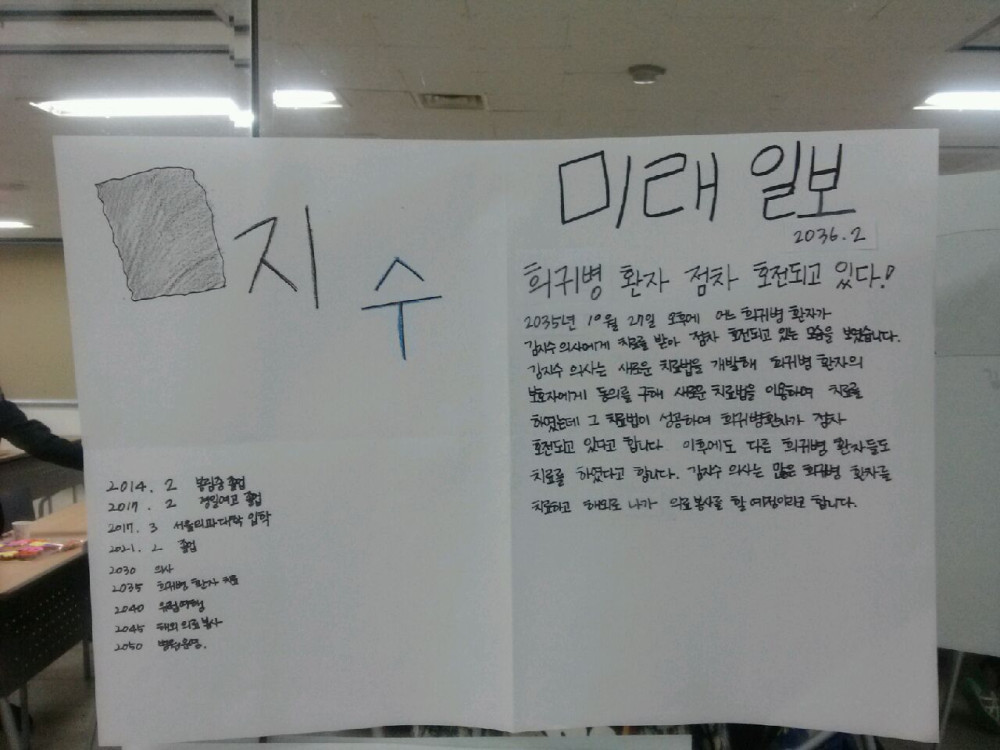 지수
2014. 2 봉림중 졸업
2017. 2 경일여고 졸업
2017. 3 서울의과대학 입학
2021. 2 졸업
2030 의사
2035 희귀병 환자 치료
2040 유럽여행
2045 해외 의료 봉사
2050 병원운영.
미래 일보
2036. 2
희귀병 환자 점차 호전되고 있다!
2035년 10월 27일 오후에 어느 희귀병 환자가
김지수 의사에게 치료를 받아 점차 호전되고 있는 모습을 보였습니다.
김지수 의사는 새로운 치료법을 개발해 희귀병 환자의
보호자에게 동의를 구해 새로운 치료법을 이용하여 치료를
하였는데 그 치료법이 성공하여 희귀병환자가 점차
호전되고 있다고 합니다 이후에도 다른 희귀병 환자들도
치료를 하였다고 합니다. 김지수 의사는 많은 희귀병 환자를
치료하고 해외로 나가 의료봉사를 할 예정이라고 합니다.